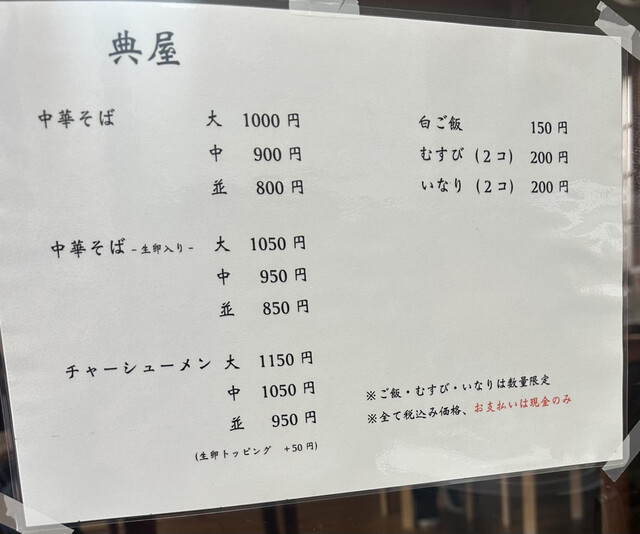 典屋
中華そば 大 1000 円
中 900 円
並 800 円
中華そば -生卵入り- 大 1050 円
中 950 円
並 850 円
チャーシューメン 大 1150 円
中 1050 円
並 950 円
(生卵トッピング +50 円)
白ご飯 150 円
むすび (2コ) 200 円
いなり (2コ) 200 円
※ご飯・むすび・いなりは数量限定
※全て税込み価格、お支払いは現金のみ